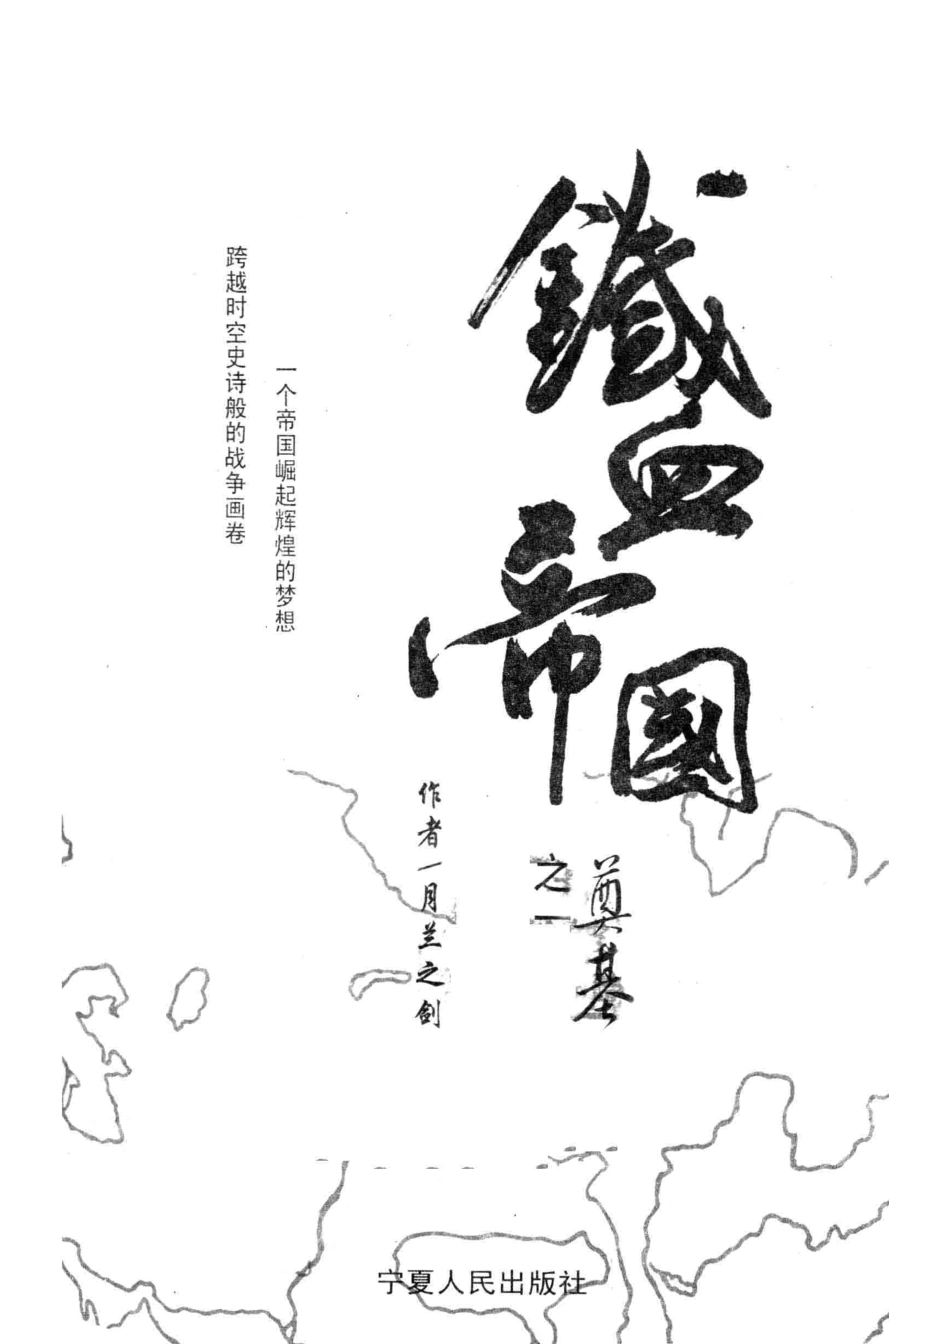 鐵血帝國
之一
奠基
一个帝国崛起辉煌的梦想
跨越时空史诗般的战争画卷
作者一月兰之剑
宁夏人民出版社